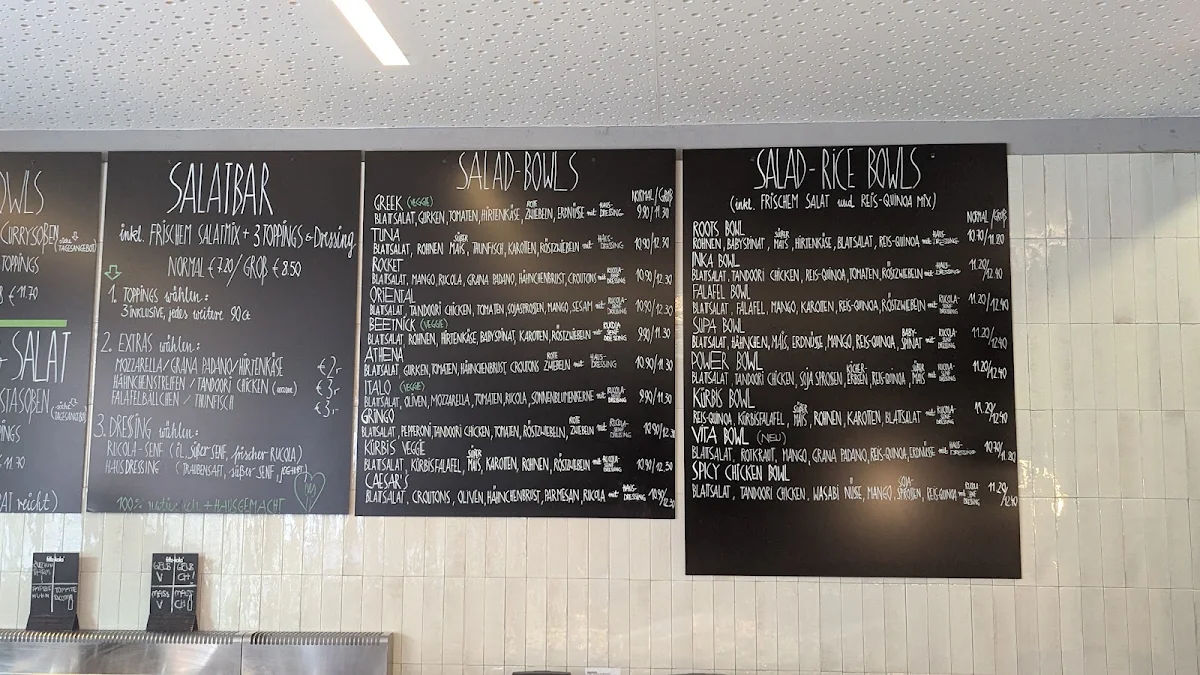 OWLS
CURRYSOßEN
TAGESANGEBOT
TOPPINGS
€ 11.70
SALAT
STASOßEN
€ 11.70
reicht)
SALATBAR
inkl. FRISCHEM SALATMIX + 3 TOPPINGS & Dressing
NORMAL € 7.20 / GROß € 8.50
1. TOPPINGS wählen:
3 INKLUSIVE, jedes weitere 90ct
2. EXTRAS wählen:
MOZZARELLA / GRANA PADANO / HIRTENKÄSE € 2,-
HÄHNCHENSTREIFEN / TANDOORI CHICKEN € 3,-
FALAFELBÄLLCHEN / THUNFISCH € 3,-
3. DRESSING wählen:
RUCOLA-SENF (Öl, süßer SENF, frischer RUCOLA)
HAUSDRESSING (TRAUBENSAFT, süßer SENF, JOGHURT)
100% natürlich + HAUSGEMACHT
SALAD-BOWLS
NORMAL / GROß
GREEK (VEGGIE)
BLATTSALAT, GURKEN, TOMATEN, HIRTENKÄSE, ROTE ZWIEBELN, ERDNÜSSE mit HAUS-DRESSING 9.90 / 11.30
TUNA
BLATTSALAT, ROHNEN, SÜßER MAIS, THUNFISCH, KAROTTEN, RÖSTZWIEBELN mit HAUS-DRESSING 10.90 / 12.30
ROCKET
BLATTSALAT, MANGO, RUCOLA, GRANA PADANO, HÄHNCHENBRUST, CROUTONS mit RUCOLA-SENF DRESSING 10.90 / 12.30
ORIENTAL
BLATTSALAT, TANDOORI CHICKEN, TOMATEN, SOJASPROSSEN, MANGO, SESAM mit RUCOLA-SENF DRESSING 10.90 / 12.30
BEETNICK (VEGGIE)
BLATTSALAT, ROHNEN, HIRTENKÄSE, BABYSPINAT, KAROTTEN, RÖSTZWIEBELN mit RUCOLA SENF DRESSING 9.90 / 11.30
ATHENA
BLATTSALAT GURKEN, TOMATEN, HÄHNCHENBRUST CROUTONS ROTE ZWIEBELN mit HAUS-DRESSING 10.90 / 11.30
ITALO (VEGGIE)
BLATTSALAT, OLIVEN, MOZZARELLA, TOMATEN, RUCOLA, SONNENBLUMENKERNE mit RUCOLA-SENF DRESSING 9.90 / 11.30
GRINGO
BLATTSALAT, PEPPERONI TANDOORI CHICKEN, TOMATEN, RÖSTZWIEBELN, ROTE ZWIEBELN mit RUCOLA-SENF DRESSING 10.90 / 12.30
KÜRBIS VEGGIE
BLATTSALAT, KÜRBISFALAFEL, SÜßER MAIS, KAROTTEN, ROHNEN, RÖSTZWIEBELN mit RUCOLA-SENF DRESSING 10.90 / 12.30
CAESAR'S
BLATTSALAT, CROUTONS, OLIVEN, HÄHNCHENBRUST, PARMESAN, RUCOLA mit HAUS-DRESSING 10.90 / 12.30
SALAD-RICE BOWLS
(inkl. FRISCHEM SALAT und REIS-QUINOA MIX)
NORMAL / GROß
ROOTS BOWL
ROHNEN, BABYSPINAT, SÜßER MAIS, HIRTENKÄSE, BLATTSALAT, REIS-QUINOA mit HAUS DRESSING 10.70 / 11.80
INKA BOWL
BLATTSALAT, TANDOORI CHICKEN, REIS-QUINOA, TOMATEN, RÖSTZWIEBELN mit HAUS-DRESSING 11.20 / 12.40
FALAFEL BOWL
BLATTSALAT, FALAFEL, MANGO, KAROTTEN, REIS-QUINOA, RÖSTZWIEBELN mit RUCOLA-SENF DRESSING 11.20 / 12.40
SUPA BOWL
BLATTSALAT, HÄHNCHEN, MAIS, ERDNÜSSE, MANGO, REIS-QUINOA, BABY-SPINAT mit RUCOLA-SENF DRESSING 11.20 / 12.40
POWER BOWL
BLATTSALAT, TANDOORI CHICKEN, SOJASPROSSEN, KICHER-ERBSEN, REIS-QUINOA, SÜßER MAIS mit RUCOLA-SENF DRESSING 11.20 / 12.40
KÜRBIS BOWL
REIS-QUINOA, KÜRBISFALAFEL, SÜßER MAIS, ROHNEN, KAROTTEN, BLATTSALAT mit RUCOLA-SENF DRESSING 11.20 / 12.40
VITA BOWL (NEU)
BLATTSALAT, ROTKRAUT, MANGO, GRANA PADANO, REIS-QUINOA, ERDNÜSSE mit HAUS-DRESSING 10.70 / 11.80
SPICY CHICKEN BOWL
BLATTSALAT, TANDOORI CHICKEN, WASABI NÜSSE, MANGO, SOJA-SPROSSEN, REIS-QUINOA mit RUCOLA SENF DRESSING 11.20 / 12.40
GELB V
GELB CH!
MASS V